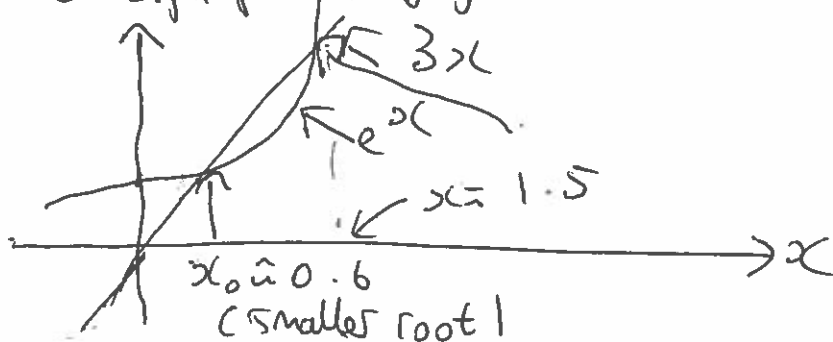 3x
e^x
x = 1.5
x₀ ≈ 0.6
(smaller root)
x